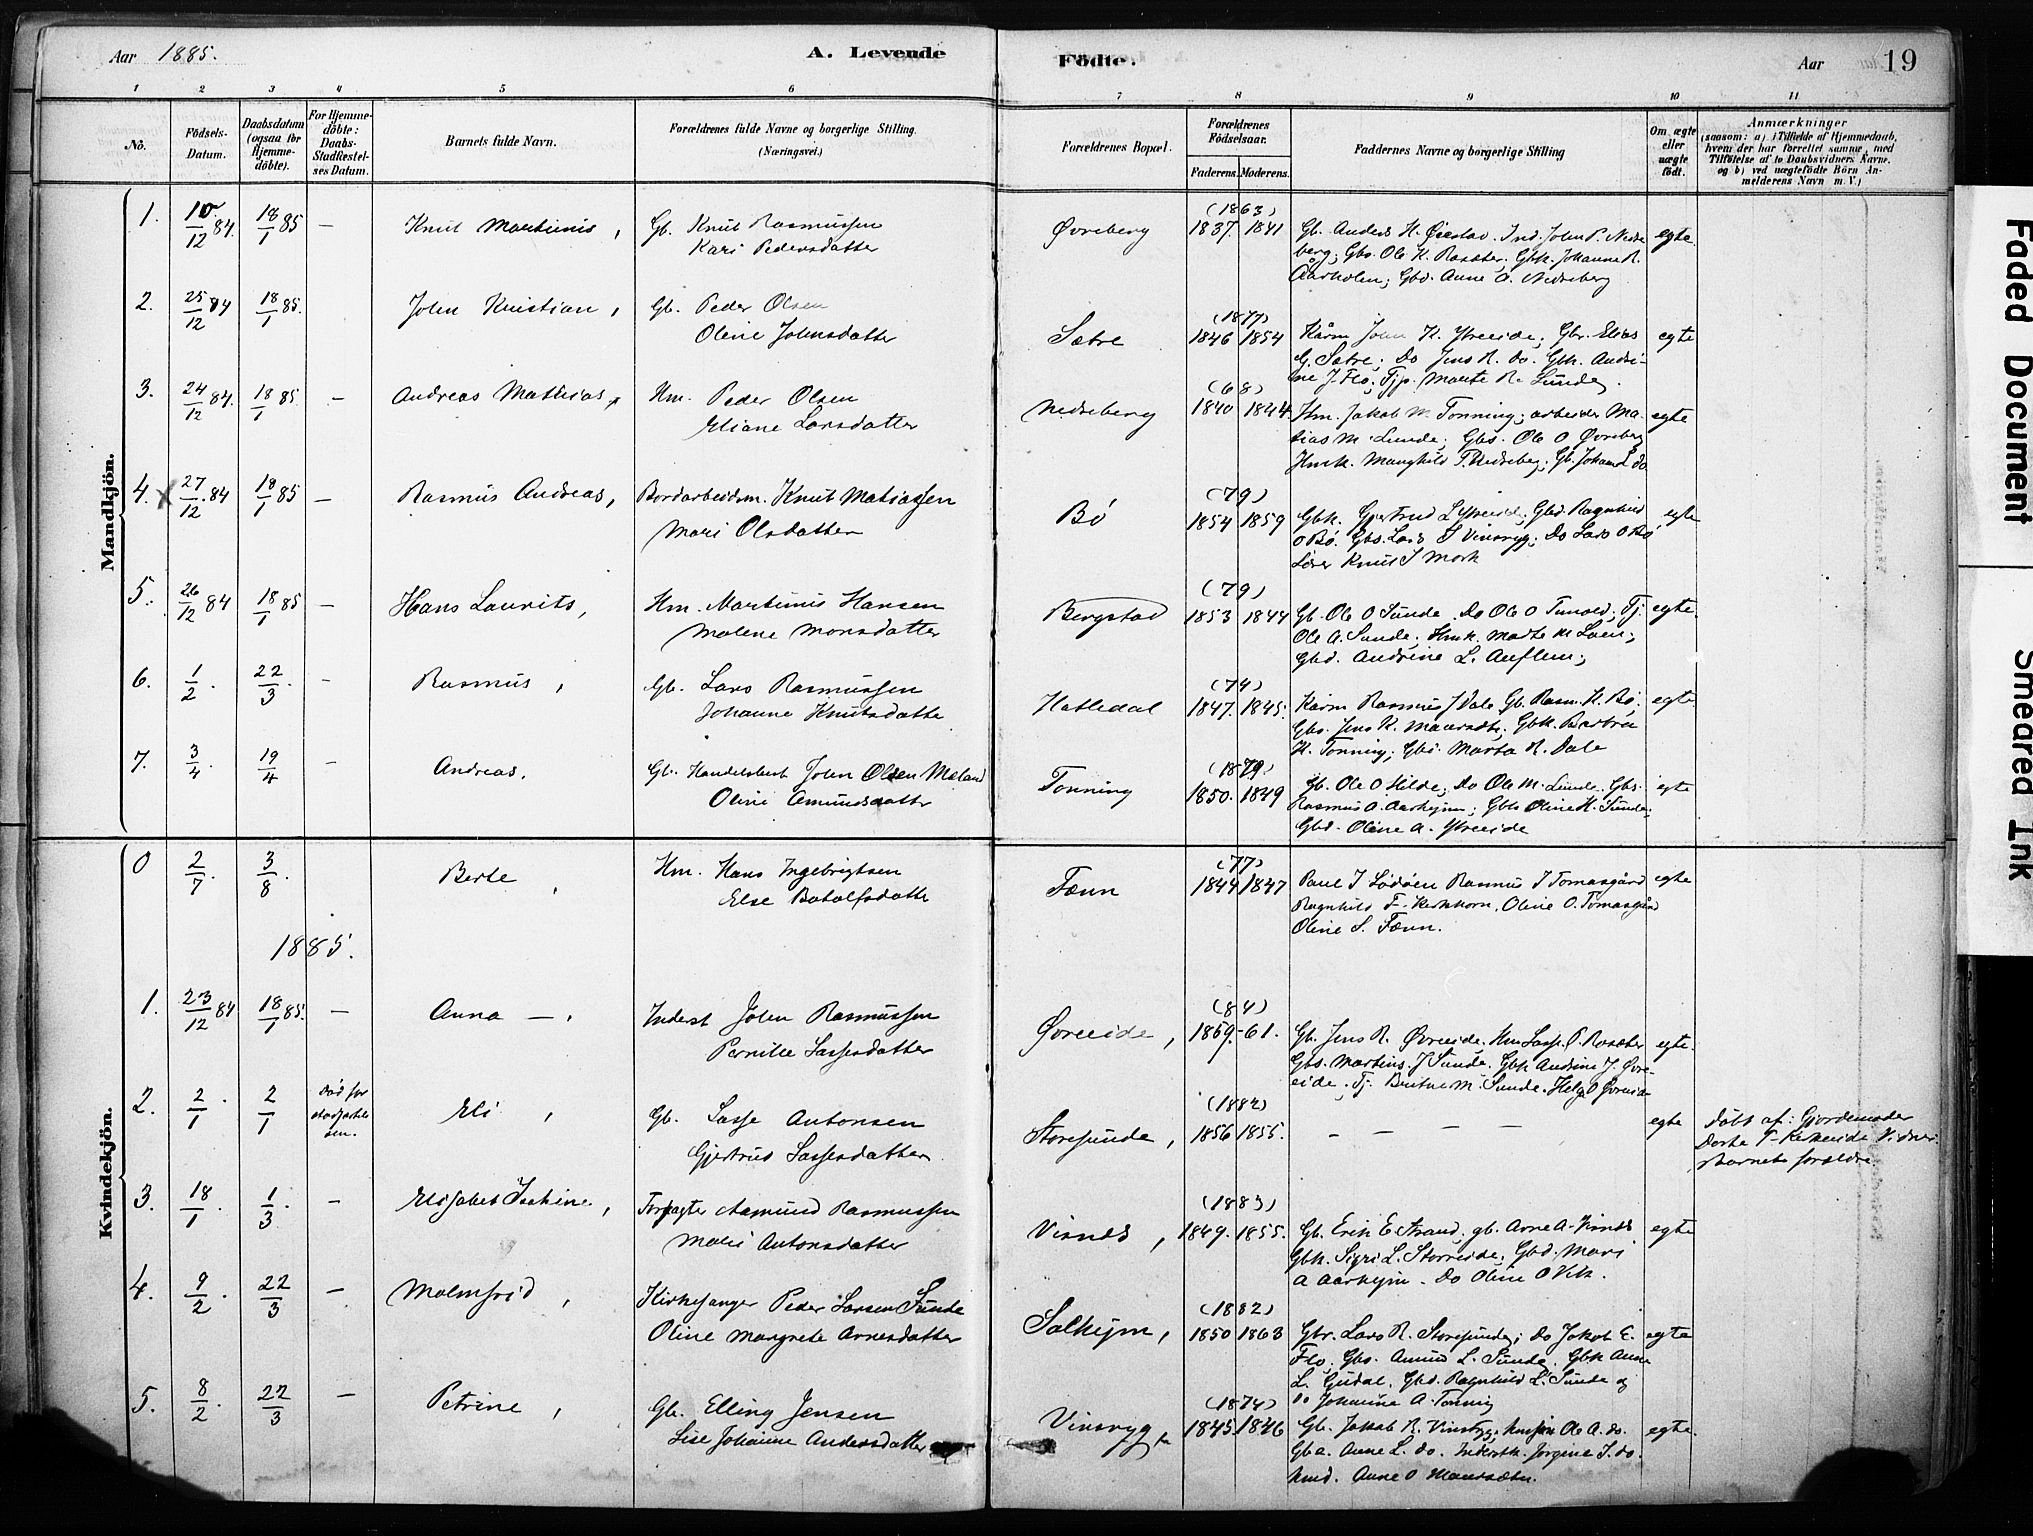 Aar 1885.
A. Levende
Födte.
Aar
19
1 2 3 4 5 6 7 8 9 10 11
No.
Födsels-Datum.
Daabsdatum (ogsaa for Hjemmedöbte).
For Hjemmedöbte: Daabs-Stadfæstelses Datum.
Barnets fulde Navn.
Forældrenes fulde Navne og borgerlige Stilling.
(Næringsvei.)
Forældrenes Bopæl.
Forældrenes Födselsaar.
Faderens. Moderens.
Faddernes Navne og borgerlige Stilling
Om ægte eller uægte født.
Anmærkninger
saasom: a) i Tilfælde af Hjemmedaab, hvem der har forrettet samme, med Tilføielse af to Daabsvidners Navne. og b) ved uægtefödte Börn Anmelderens Navn m. V.)
Mandkjön.
1. 10/12 84. 18/1 85 — Knut Martinus, Gb. Knut Rasmussen
Kari Pedersdatter
Øvreberg (1863) 1837. 1841 Gb. Anders H. Ørestad. Ind. John P. Nedre
berg; Gbs. Ole K. Rosæter. Gbk. Johanne R.
Aarholen; Gbd. Anne A. Nedreberg
egte
2. 25/12 84 18/1 85. — John Kristian, Gb. Peder Olsen
Oline Johnsdatter
Sætre (1877) 1846 1854 Kårm John K. Ytreeide; Gbr. Elias
G. Sætre; Do Jens R. do. Gbk. Andri-
ne J. Flo; Tjp. Marte R. Sunde.
egte
3. 24/12 84. 18/1 85 — Andreas Mathias, Hm. Peder Olsen
Eliane Larsdatter
Nedreberg (68) 1840 1844 Hm. Jakob M Tonning; arbeider Ma-
tias M. Lunde; Gbs. Ole O Øvreberg
Hmk. Manghild P. Nedreberg; Gb. Johan L do
egte
4. x 27/12 84 18/1 85 — Rasmus Andreas, Bordarbeidsm. Knut Matiassen
Mari Olsdatter
Bø (79) 1854 1859 Gbk. Gjertrud L Ytreeide; Gbd. Ragnhild
O Bø. Gbs. Lars J Vinsryg; Do Lars O Bø
Lærer Knut J Mork
egte
5. 26/12 84 18/1 85 — Hans Laurits, Hm. Martinus Hansen
Malene Monsdatter
Bergstad (79) 1853 1844 Gb. Ole O Sunde. Do Ole O Tunold; Tj.
Ole A. Sunde. Hmk. Marte M Loen;
Gbd. Andrine L. Auflem;
egte.
6. 1/2. 22/3. — Rasmus, Gb. Lars Rasmussen
Johanne Knutsdatter
Hatledal (74) 1847. 1845. Kårm Rasmus J Dale Gb. Rasm. K. Bø.
Gbs. Jens K. Maursæt; Gbk. Barbra
K. Tonning; Gbd. Marta R. Dale
egte
7. 3/4 19/4 — Andreas. Gb. Handelsbest. John Olsen Meland
Oline Amundsdatter
Tonning (1879) 1850. 1849 Gb. Ole O Hilde; Do Ole M. Lunde. Gbs.
Rasmus A. Aarhejm; Gbk Oline K. Sunde;
Gbd. Oline A. Ytreeide
egte
Kvindekjön.
0 2/7. 3/8. Berte, Hm. Hans Ingebrigtsen
Else Botolfsdatter
Fænn (77) 1844 1847 Paul J Lødøen Rasmus J Tomasgård
Ragnhild T. Kirkhorn, Oline O. Tomasgård
Oline S. Fænn.
egte
1885.
1. 23/12 84 18/1 85. — Anna —, Inderst John Rasmussen
Pernille Lassesdatter
Øvreeide, (84) 1859.-61. Gb. Jens R. Øvreeide. Hm Lasse P. Rosæter
Gbs. Martinus J Sunde. Gbk Andrine J. Øvre-
eide, Tj. Birthe M. Sunde. Helge O Øvreeide
egte.
2. 2/1. 2/1 Død før
stadfæstel-
sen. Eli, Gb. Lasse Antonsen
Gjertrud Lassesdatter
Storesunde, (1882) 1856 1855. — — — — egte Døbt af: Gjordemoder
Dorte T. Vidner:
Barnets forældre.
3. 18/1 1/3. — Elisabet Isakine, Forpagter Aamund Rasmussen
Malie Antonsdatter
Visnes, (1883) 1849. 1855. Gb. Erik E Strand, gb. Arne A. Visnes
Gbk. Sigri L. Storeeide; Gbd. Mari
A Aarhejm. Do Oline O Vik.
egte
4. 9/2. 22/3 — Malmfrid, Kirkesanger Peder Larsen Sunde
Oline Margrete Arnesdatter
Solhejm, (1882) 1850 1863 Gbr. Lars R. Storesunde; do Jakob E.
Flo, Gbs. Amund L. Sunde. Gbk Anne
L. Gudal. Gbd. Ragnhild L. Sunde og
do Johanne A. Tonning
egte
5. 8/2. 22/3 — Petrine, Gb. Elling Jensen
Lise Johanne Andersdatter
Vinsryg (1874) 1845. 1846 Gb. Jakob R. Vinsryg; Ole A. do.
Gbd. Anne L. do. Inderstk. Jørgine I. do.
hmd. Anne O Maursæter.
egte.
Faded Document
Smeared Ink